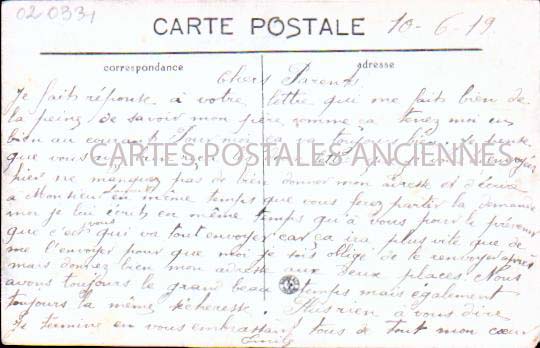 02 0331
CARTE POSTALE 10-6-19
correspondance adresse
Chers Parents
Je fais réponse à votre lettre qui me fait bien de
la peine de savoir mon père comme ça tenez moi en
bien au courant Pour moi ça va toujours bien Je pense
que vous
CARTES POSTALES ANCIENNES
hier ne manquez pas de bien donner mon adresse et d'écrire
à Monsieur en même temps que vous ferez partir la demande
moi je lui écris en même temps qu'à vous pour le prévenir
que c'est vous qui va tout envoyer car ça ira plus vite que de
me l'envoyer pour que moi je sois obligé de le renvoyer après
mais donnez bien mon adresse aux deux places Nous
avons toujours le grand beau temps mais également
toujours la même sécheresse. Plus rien à vous dire
Je termine en vous embrassant tous de tout mon cœur
Emile